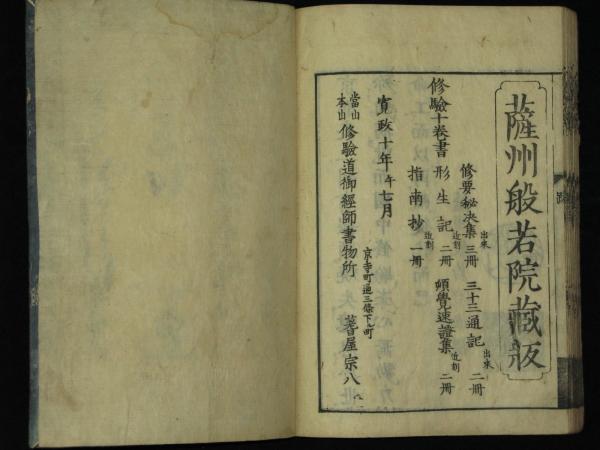 薩州般若院藏版
修驗十卷書
修要秘决集 出來 三冊 三十三通記 出來 二冊
形生記 近刻 二冊 頓覺速證集 近刻 二冊
指南抄 近刻 一冊
寛政十年午七月
當山 本山 修驗道御經師書物所
京寺町通三條下ル町
蓍屋宗八